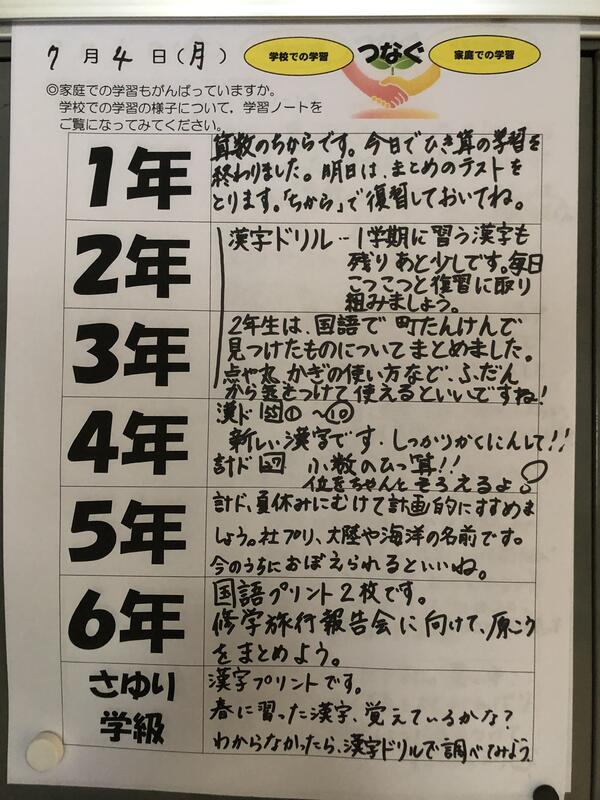 7月4日(月)
学校での学習 つなぐ 家庭での学習
◎家庭での学習もがんばっていますか。
学校での学習の様子について，学習ノートを
ご覧になってみてください。
1年
算数のちからです。今日でひき算の学習を
終わりました。明日は、まとめのテストを
とります。「ちから」で復習しておいてね。
2年
漢字ドリル…1学期に習う漢字も
残りあと少しです。毎日
こつこつと復習に取り
組みましょう。
3年
2年生は、国語で町たんけんで
見つけたものについてまとめました。
点や丸、かぎの使い方など、ふだん
から気をつけて使えるといいですね！
4年
漢ド55①〜⑩
新しい漢字です。しっかりかくにんして！！
計ド27 小数のひっ算！！
位をちゃんとそろえるよ。
5年
計ド、夏休みにむけて計画的にすすめま
しょう。社プリ、大陸や海洋の名前です。
今のうちにおぼえられるといいね。
6年
国語プリント2枚です。
修学旅行報告会に向けて、原こう
をまとめよう。
さゆり
学級
漢字プリントです。
春に習った漢字、覚えているかな？
わからなかったら、漢字ドリルで調べてみよう。